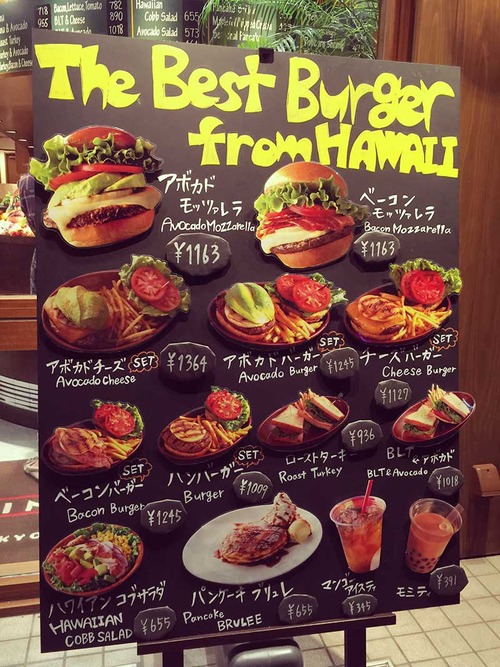 718 Bacon, Lettuce, Tomato 782
955 BLT & Cheese 890
BLT & Avocado 1018
Hawaiian
Cobb Salad 655
Avocado Salad 573
The Best Burger
from HAWAII
アボカド
モッツァレラ
Avocado Mozzarella
¥1163
ベーコン
モッツァレラ
Bacon Mozzarella
¥1163
アボカドチーズ SET
Avocado Cheese
¥1364
アボカドバーガー SET
Avocado Burger
¥1245
チーズバーガー SET
Cheese Burger
¥1127
ベーコンバーガー SET
Bacon Burger
¥1245
ハンバーガー SET
Burger
¥1009
ローストターキー
Roast Turkey
¥936
BLT & アボカド
BLT & Avocado
¥1018
ハワイアン コブサラダ
HAWAIIAN
COBB SALAD
¥655
パンケーキ ブリュレ
Pancake
BRULEE
¥655
マンゴー
アイスティ
¥345
モミティ
¥391